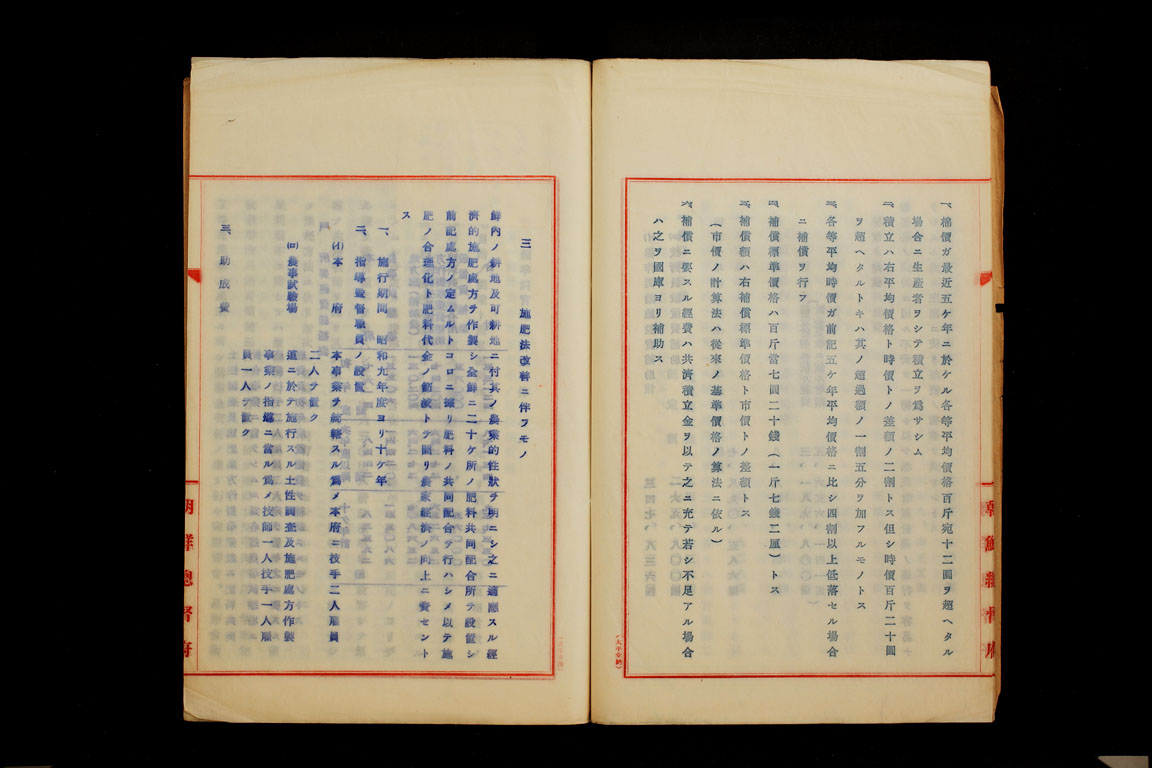 一、補償ガ最近五ケ年ニ於ケル各等平均價格百斤宛十二圓ヲ超ヘタル
場合ニ生産者ヲシテ積立ヲ爲サシム
二、積立ハ右平均價格ト時價トノ差額ノ二割トス但シ時價百斤二十圓
ヲ超ヘタルトキハ其ノ超過額ノ一割五分ヲ加フルモノトス
三、各等平均時價ガ前記五ケ年平均價格ニ比シ四割以上低落セル場合
ニ補償ヲ行フ
四、補償標準價格ハ百斤當七圓二十錢(一斤七錢二厘)トス
五、補償額ハ右補償標準價格ト市價トノ差額トス
(市價ノ計算法ハ從來ノ基準價格ノ算法ニ依ル)
六、補償ニ要スル經費ハ共濟積立金ヲ以テ之ニ充テ若シ不足アル場合
ハ之ヲ國庫ヨリ補助ス
朝鮮總督府
三 施肥法改善ニ伴フモノ
鮮内ノ耕地及可耕地ニ付其ノ農業的性狀ヲ明ニシ之ニ適應スル經
濟的施肥處方ヲ作製シ全鮮ニ二十ケ所ノ肥料共同配合所ヲ設置シ
前記處方ノ定ムルトコロニ據リ肥料ノ共同配合ヲ行ハシメ以テ施
肥ノ合理化ト肥料代金ノ節減トヲ圖リ農家經濟ノ向上ニ資セント
ス
一、施行期間 昭和九年度ヨリ十ケ年
二、指導監督職員ノ設置
(イ)本府 本事業ヲ統轄スル爲メ本府ニ技手二人雇員
二人ヲ置ク
(ロ)農事試驗場 道ニ於テ施行スル土性調査及施肥處方作製
事業ノ指導ニ當ル爲メ技師一人技手一人雇
員一人ヲ置ク
三、助成費
朝鮮總督府